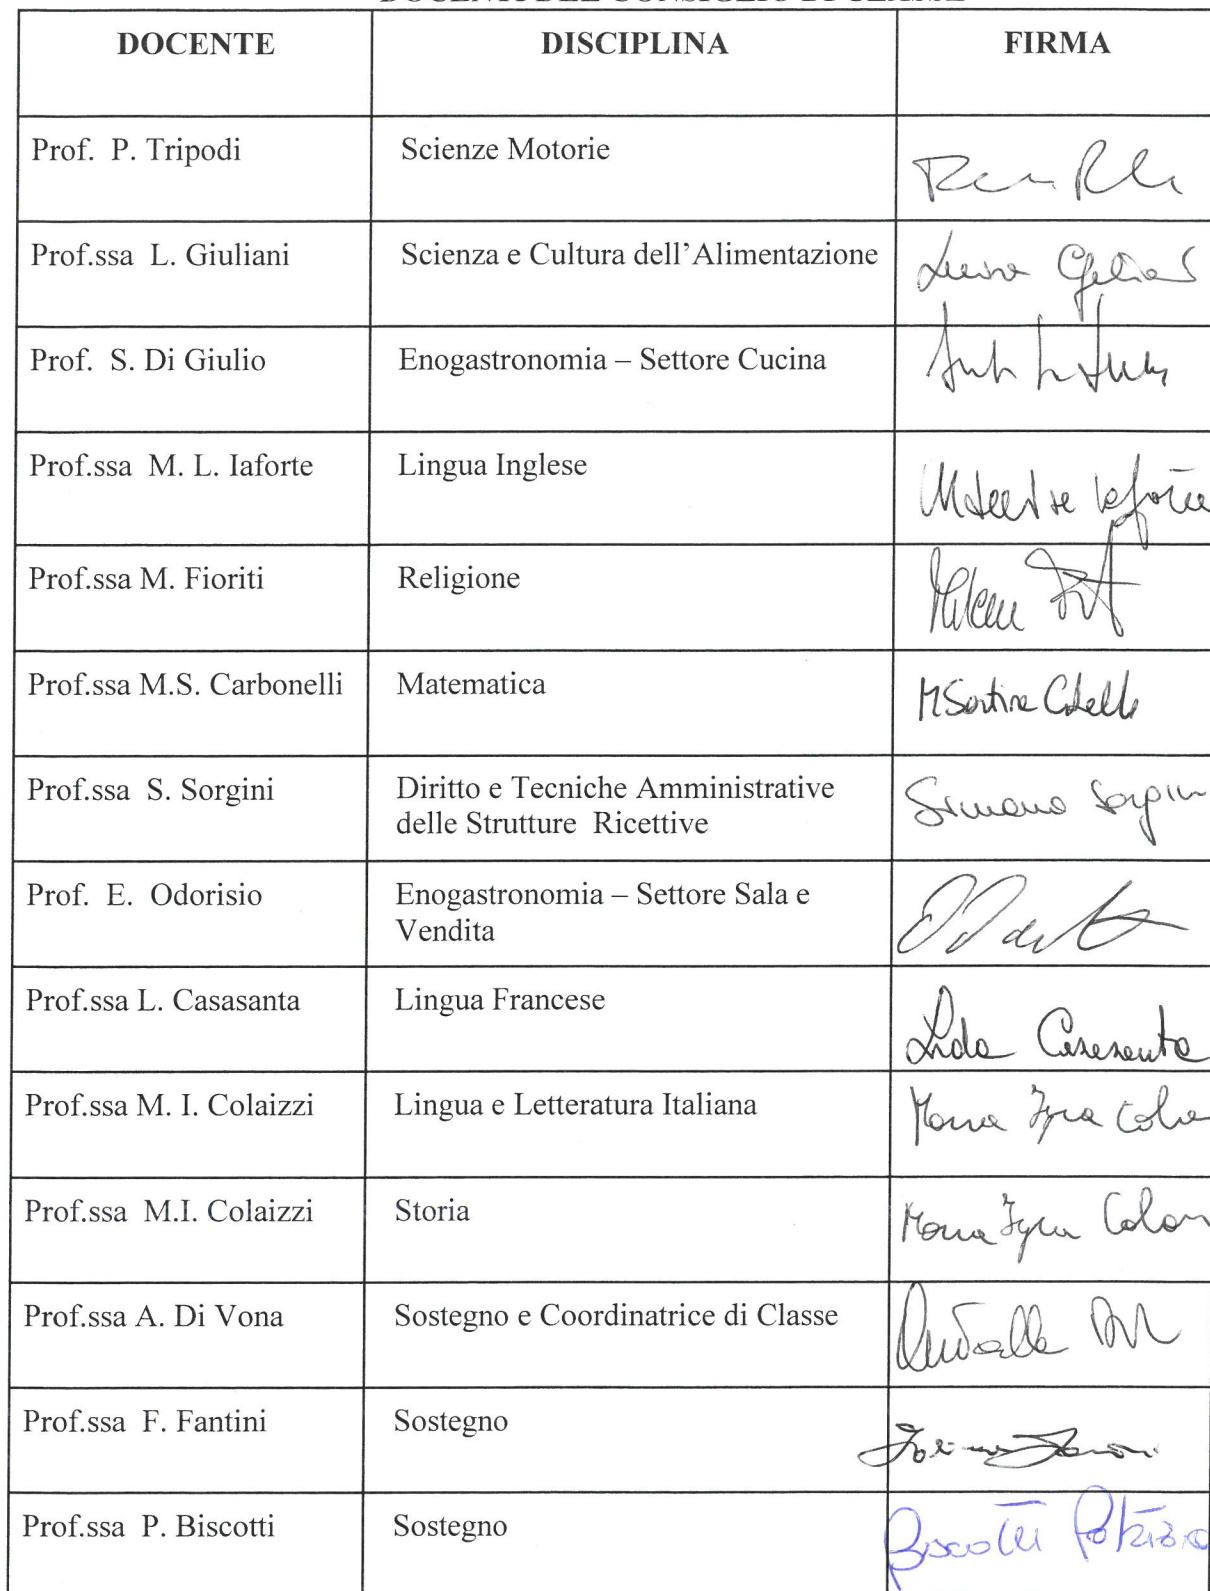 DOCENTI DEL CONSIGLIO DI CLASSE
DOCENTE DISCIPLINA FIRMA
Prof. P. Tripodi Scienze Motorie
Prof.ssa L. Giuliani Scienza e Cultura dell'Alimentazione
Prof. S. Di Giulio Enogastronomia – Settore Cucina
Prof.ssa M. L. Iaforte Lingua Inglese
Prof.ssa M. Fioriti Religione
Prof.ssa M.S. Carbonelli Matematica
Prof.ssa S. Sorgini Diritto e Tecniche Amministrative
delle Strutture Ricettive
Prof. E. Odorisio Enogastronomia – Settore Sala e
Vendita
Prof.ssa L. Casasanta Lingua Francese Lida Casasanta
Prof.ssa M. I. Colaizzi Lingua e Letteratura Italiana
Prof.ssa M.I. Colaizzi Storia
Prof.ssa A. Di Vona Sostegno e Coordinatrice di Classe
Prof.ssa F. Fantini Sostegno
Prof.ssa P. Biscotti Sostegno Biscotti Patrizia